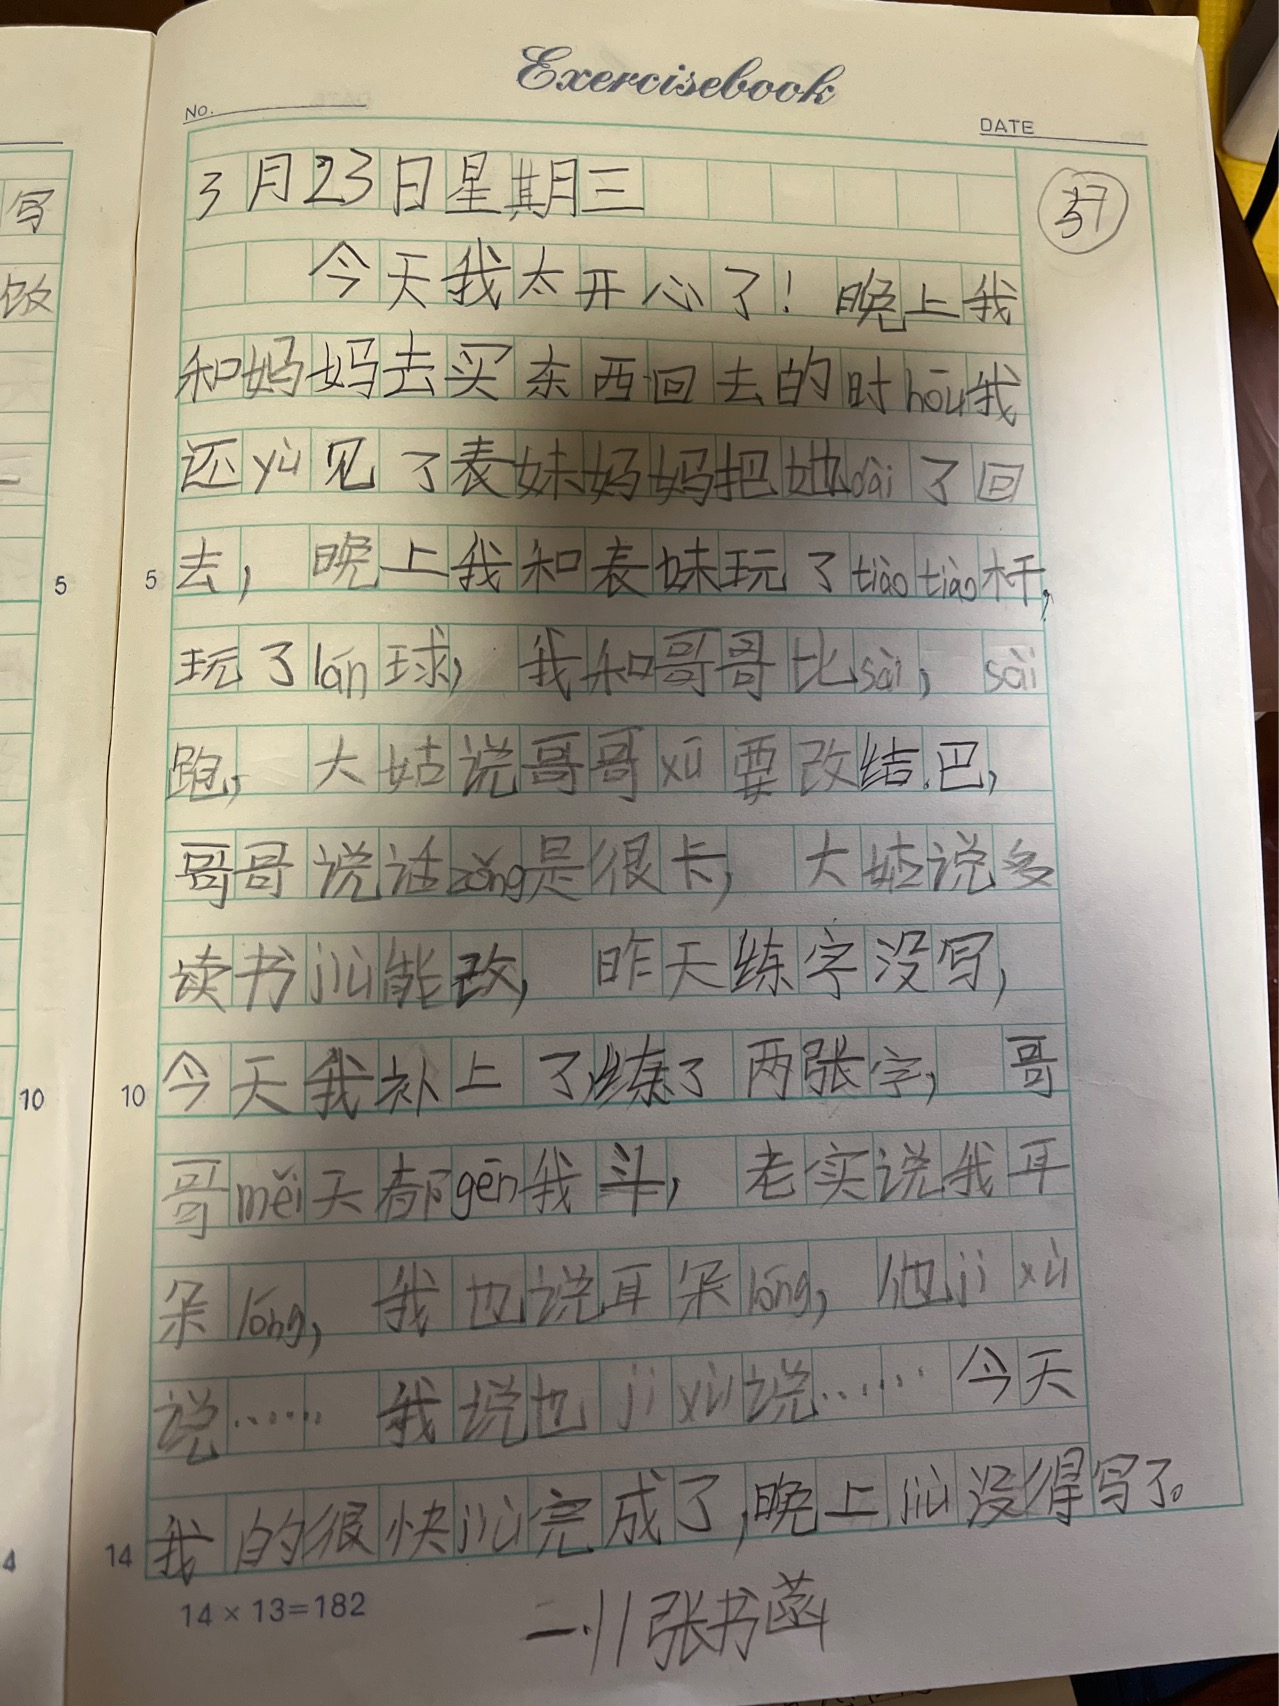 Exercisebook
NO.
DATE
3月23日星期三
37
今天我太开心了！晚上我
和妈妈去买东西回去的时hōu我
还yù见了表妹妈妈把她dài了回
去，晚上我和表妹玩了tiào tiào杆，
玩了lán球，我和哥哥比sài，sài
跑，大姑说哥哥xū要改结巴，
哥哥说话zǒng是很卡，大姑说多
读书jiù能改，昨天练字没写，
今天我补上了，练了两张字，哥
哥měi天都gēn我斗，老实说我耳
朵lóng，我也说耳朵lóng，他jì xù
说……我说也jì xù说……今天
我的很快jiù完成了，晚上jiù没得写了。
5
5
10
10
14
4
14×13=182
二.11张书菡
写
饭